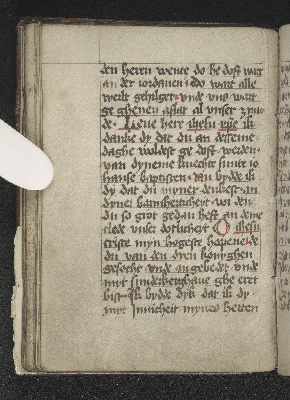 den heren wente do he dost wart
an der iordanen do wart alle
welt gehilget vnde vns wart
ge gheuen aflat al vnser sun
de Leue here ihesu criste ik
danke dy dat du an desseme
daghe woldest ge doft werden
van dyneme knecht sunte io
hanse baptisten an byde ik
dy dat du myner denkest an
dyner barmherticheyt wen den
du so grot gedan hest an deme
stede vnser dotlicheyt O ihesu
criste myn hogeste hapene de
du van den dren konynghen
gesocht vnde angebedet vnde
myt sunderberghaue ghe eret
bist Ik bydde dyk dat ik dy
myt ynnicheit mynes herten